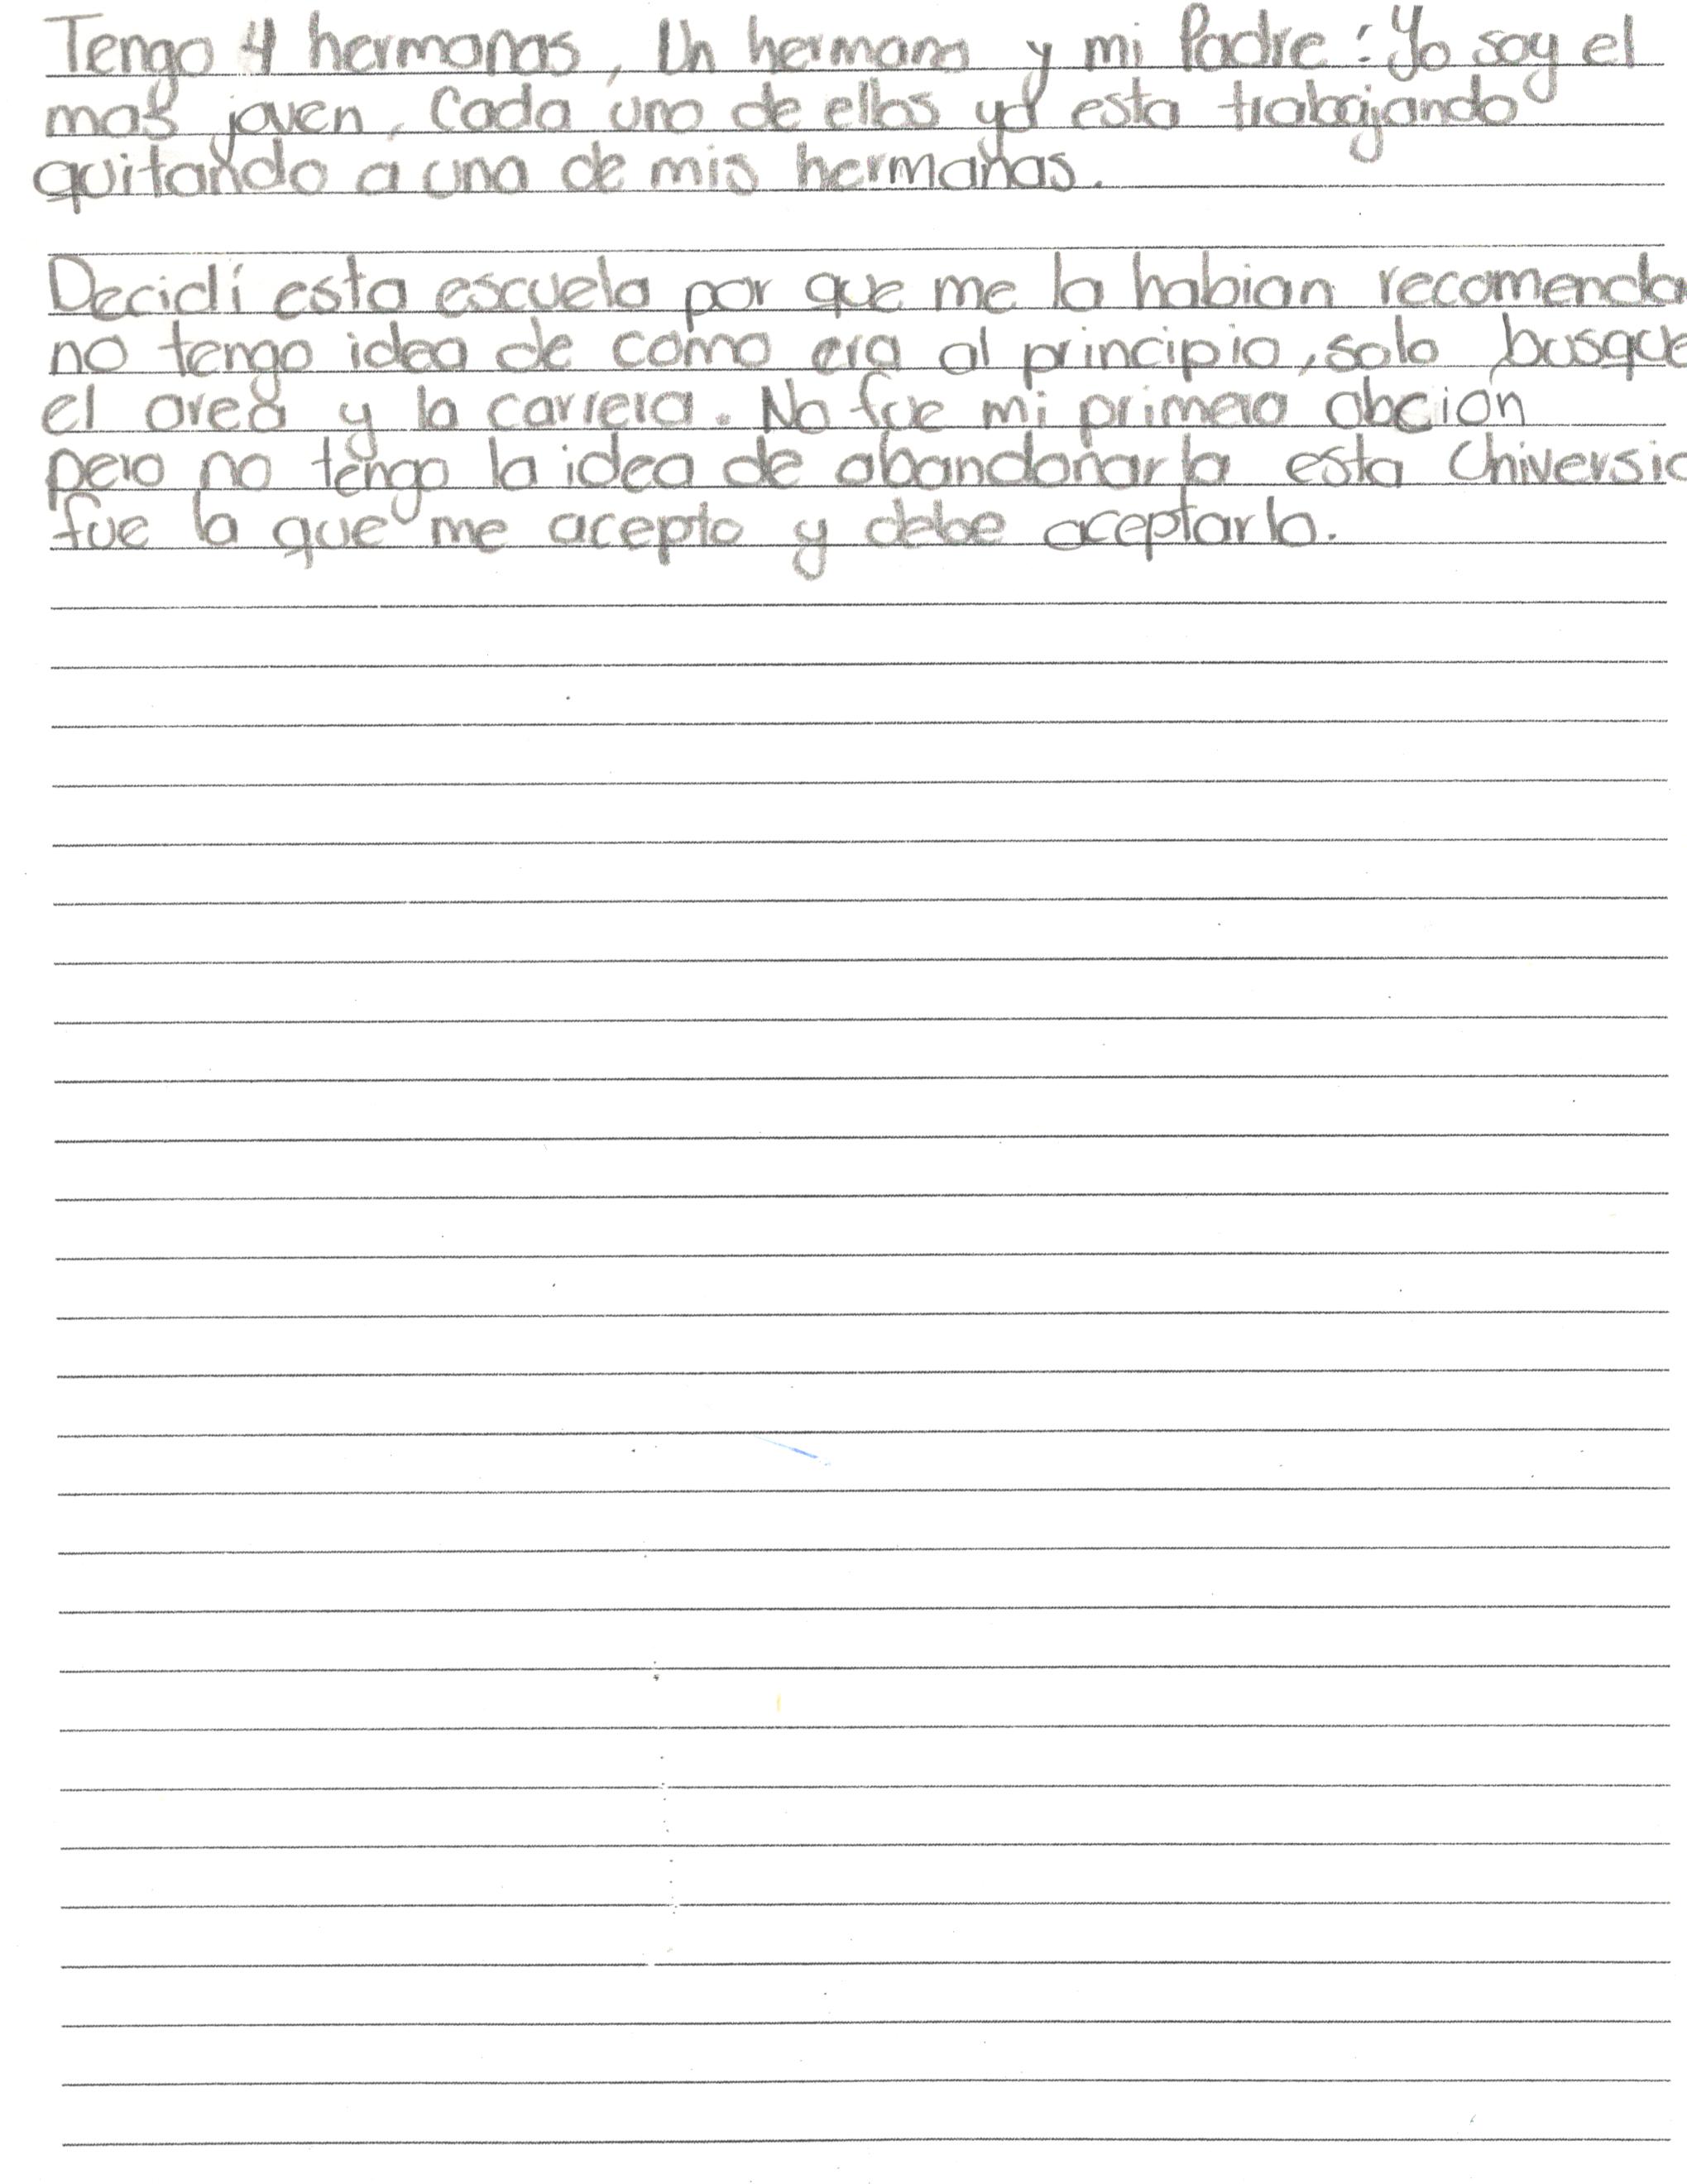 Tengo 4 hermanas, Un hermano y mi Padre: Yo soy el
mas joven. Cada uno de ellos ya esta trabajando
quitando a una de mis hermanas.
Decidí esta escuela por que me la habian recomenda
no tengo idea de como era al principio, solo busque
el area y la carrera. No fue mi primera obcion
pero no tengo la idea de abandonarla esta Universid
fue la que me acepto y debe aceptarlo.